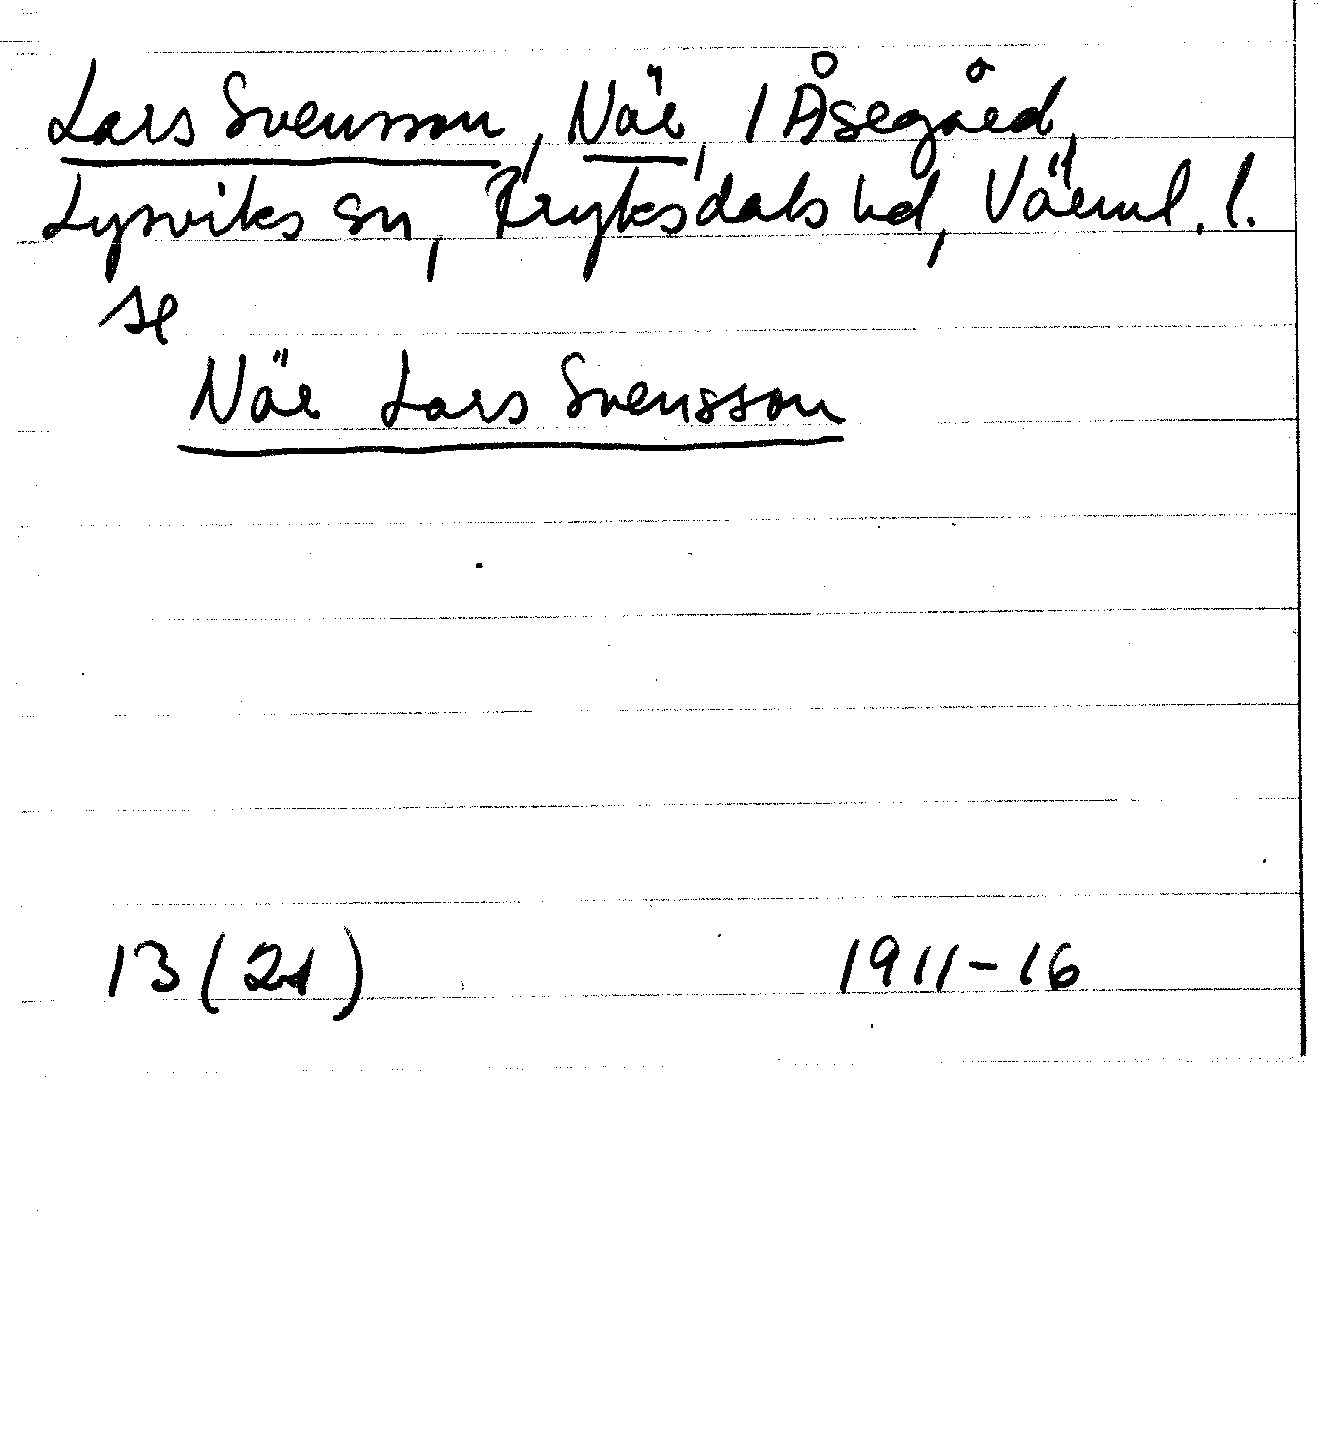 Lars Svensson, När, i Åsegård,
Lysviks sn, Fryksdals hd, Värml. l.
se
När Lars Svensson
13 (21) 1911-16